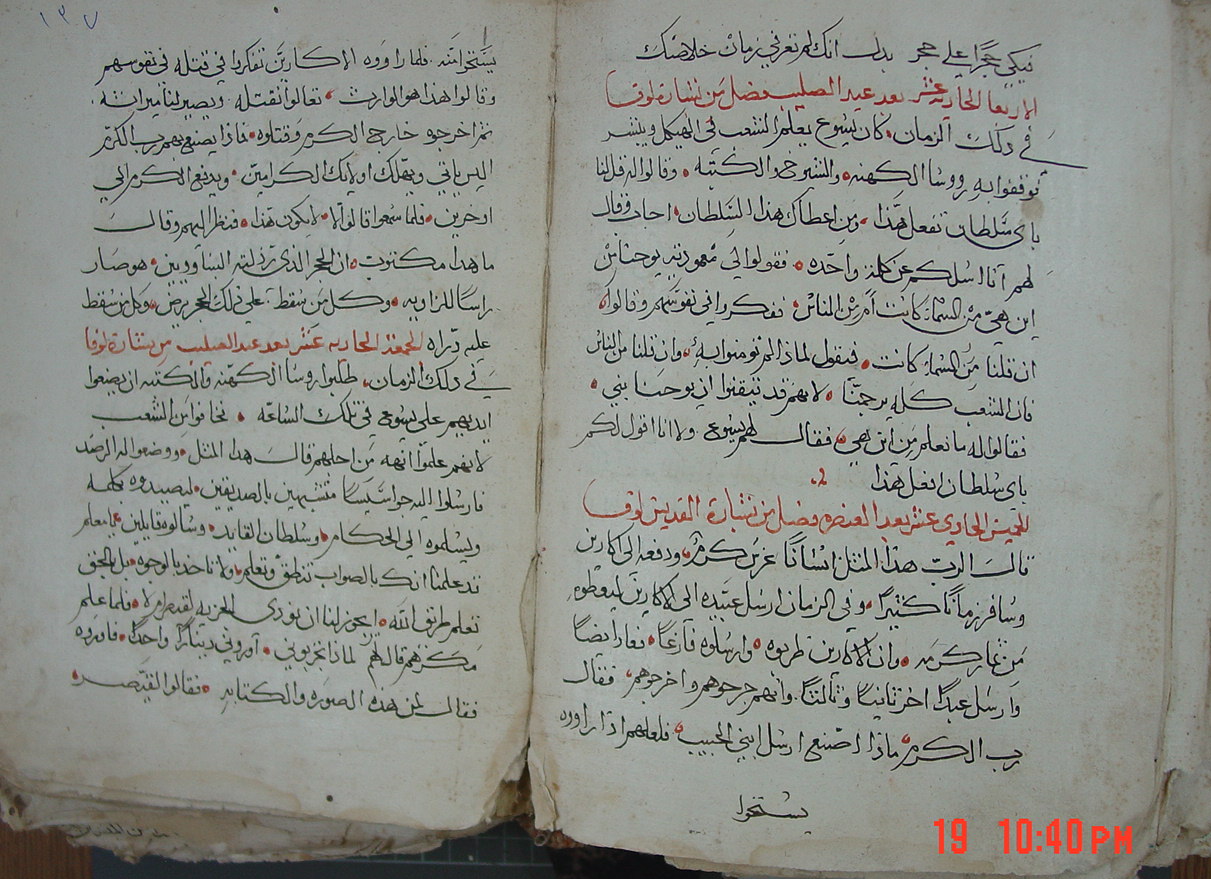 فيكي حجرًا علي حجر بدل انك لم تعرفي زمان خلاصك
الاربعا الحاديه عشر بعد عيد الصليب فصل من بشارة لوقا
في ذلك الزمان كان يسوع يعلم الشعب في الهيكل ويبشر
توقفوا به رووسا الكهنه والشيوخ والكتبه وقالوا له قل لنا
باي سلطان تفعل هذا ومن اعطاك هذا السلطان اجاب وقال
لهم انا اسلكم عن كلمة واحده فقولوا لي معموديه يوحنا من
اين هي من السماء كانت ام من الناس ففكروا في نفوسهم وقالوا
ان قلنا من السماء كانت فيقول لماذا لم تومنوا به وان قلنا من الناس
فان الشعب كله يرجمنا لانهم قد تيقنوا ان يوحنا نبي
فقالوا له ما نعلم من اين هي فقال لهم يسوع ولا انا اقول لكم
باي سلطان افعل هذا
الخميس الحادي عشر بعد العنصره فصل من بشارة القديس لوقا
قال الرب هذا المثل انسانًا غرس كرم ودفعه الي اكارين
وسافر زمانًا كثيرًا وفي الزمان ارسل عبيده الي الاكارين ليعطوه
من ثمار كرمه وان الاكارين ضربوه وارسلوه فارغًا فعاد ايضًا
وارسل عبدًا اخر ثانيًا وثالثًا وانهم جرحوهم واخرجوهم فقال
رب الكرم ماذا اصنع ارسل ابني الحبيب فلعلهم اذا راووه
يستحوا
١٣٧
يستحوا منه فلما راووه الاكارين تفكروا في قتله في نفوسهم
وقالوا هذا هو الوارث تعالوا نقتله ويصير لنا ميراثه
ثم اخرجوه خارج الكرم وقتلوه فماذا يصنع بهم رب الكرم
اليس ياتي ويهلك اوليك الكرامين ويدفع الكرم الي
اخرين فلما سمعوا قالوا لا لا يكون هذا فنظر اليهم وقال
ما هذا مكتوب ان الحجر الذي رذلته البناوين هو صار
راسًا للزاويه وكل من سقط علي ذلك الحجر يرض وكل من سقط
عليه ذراه الجمعة الحاديه عشر بعد عيد الصليب من بشارة لوقا
في ذلك الزمان طلبوا روسا الكهنه والكتبه ان يضعوا
ايديهم علي يسوع في تلك الساعه فخافوا من الشعب
لانهم علموا انه من اجلهم قال هذا المثل ووضعوا له الرصد
فارسلوا اليه جواسيسًا متشبهين بالصديقين ليصيدوه بكلمه
ويسلموه الي الحكام وسلطان القايد وسالوه قايلين يا معلم
قد علمنا انك بالصواب تنطق وتعلم ولا تاخذ بالوجوه بل بالحق
تعلم طريق الله ايجوز لنا ان نودي الجزيه لقيصر ام لا فلما علم
مكرهم قال لهم لماذا تجربوني اروني دينارًا واحدًا فاوروه
فقال لمن هذه الصوره والكتابه فقالوا لقيصر
19 10:40 PM